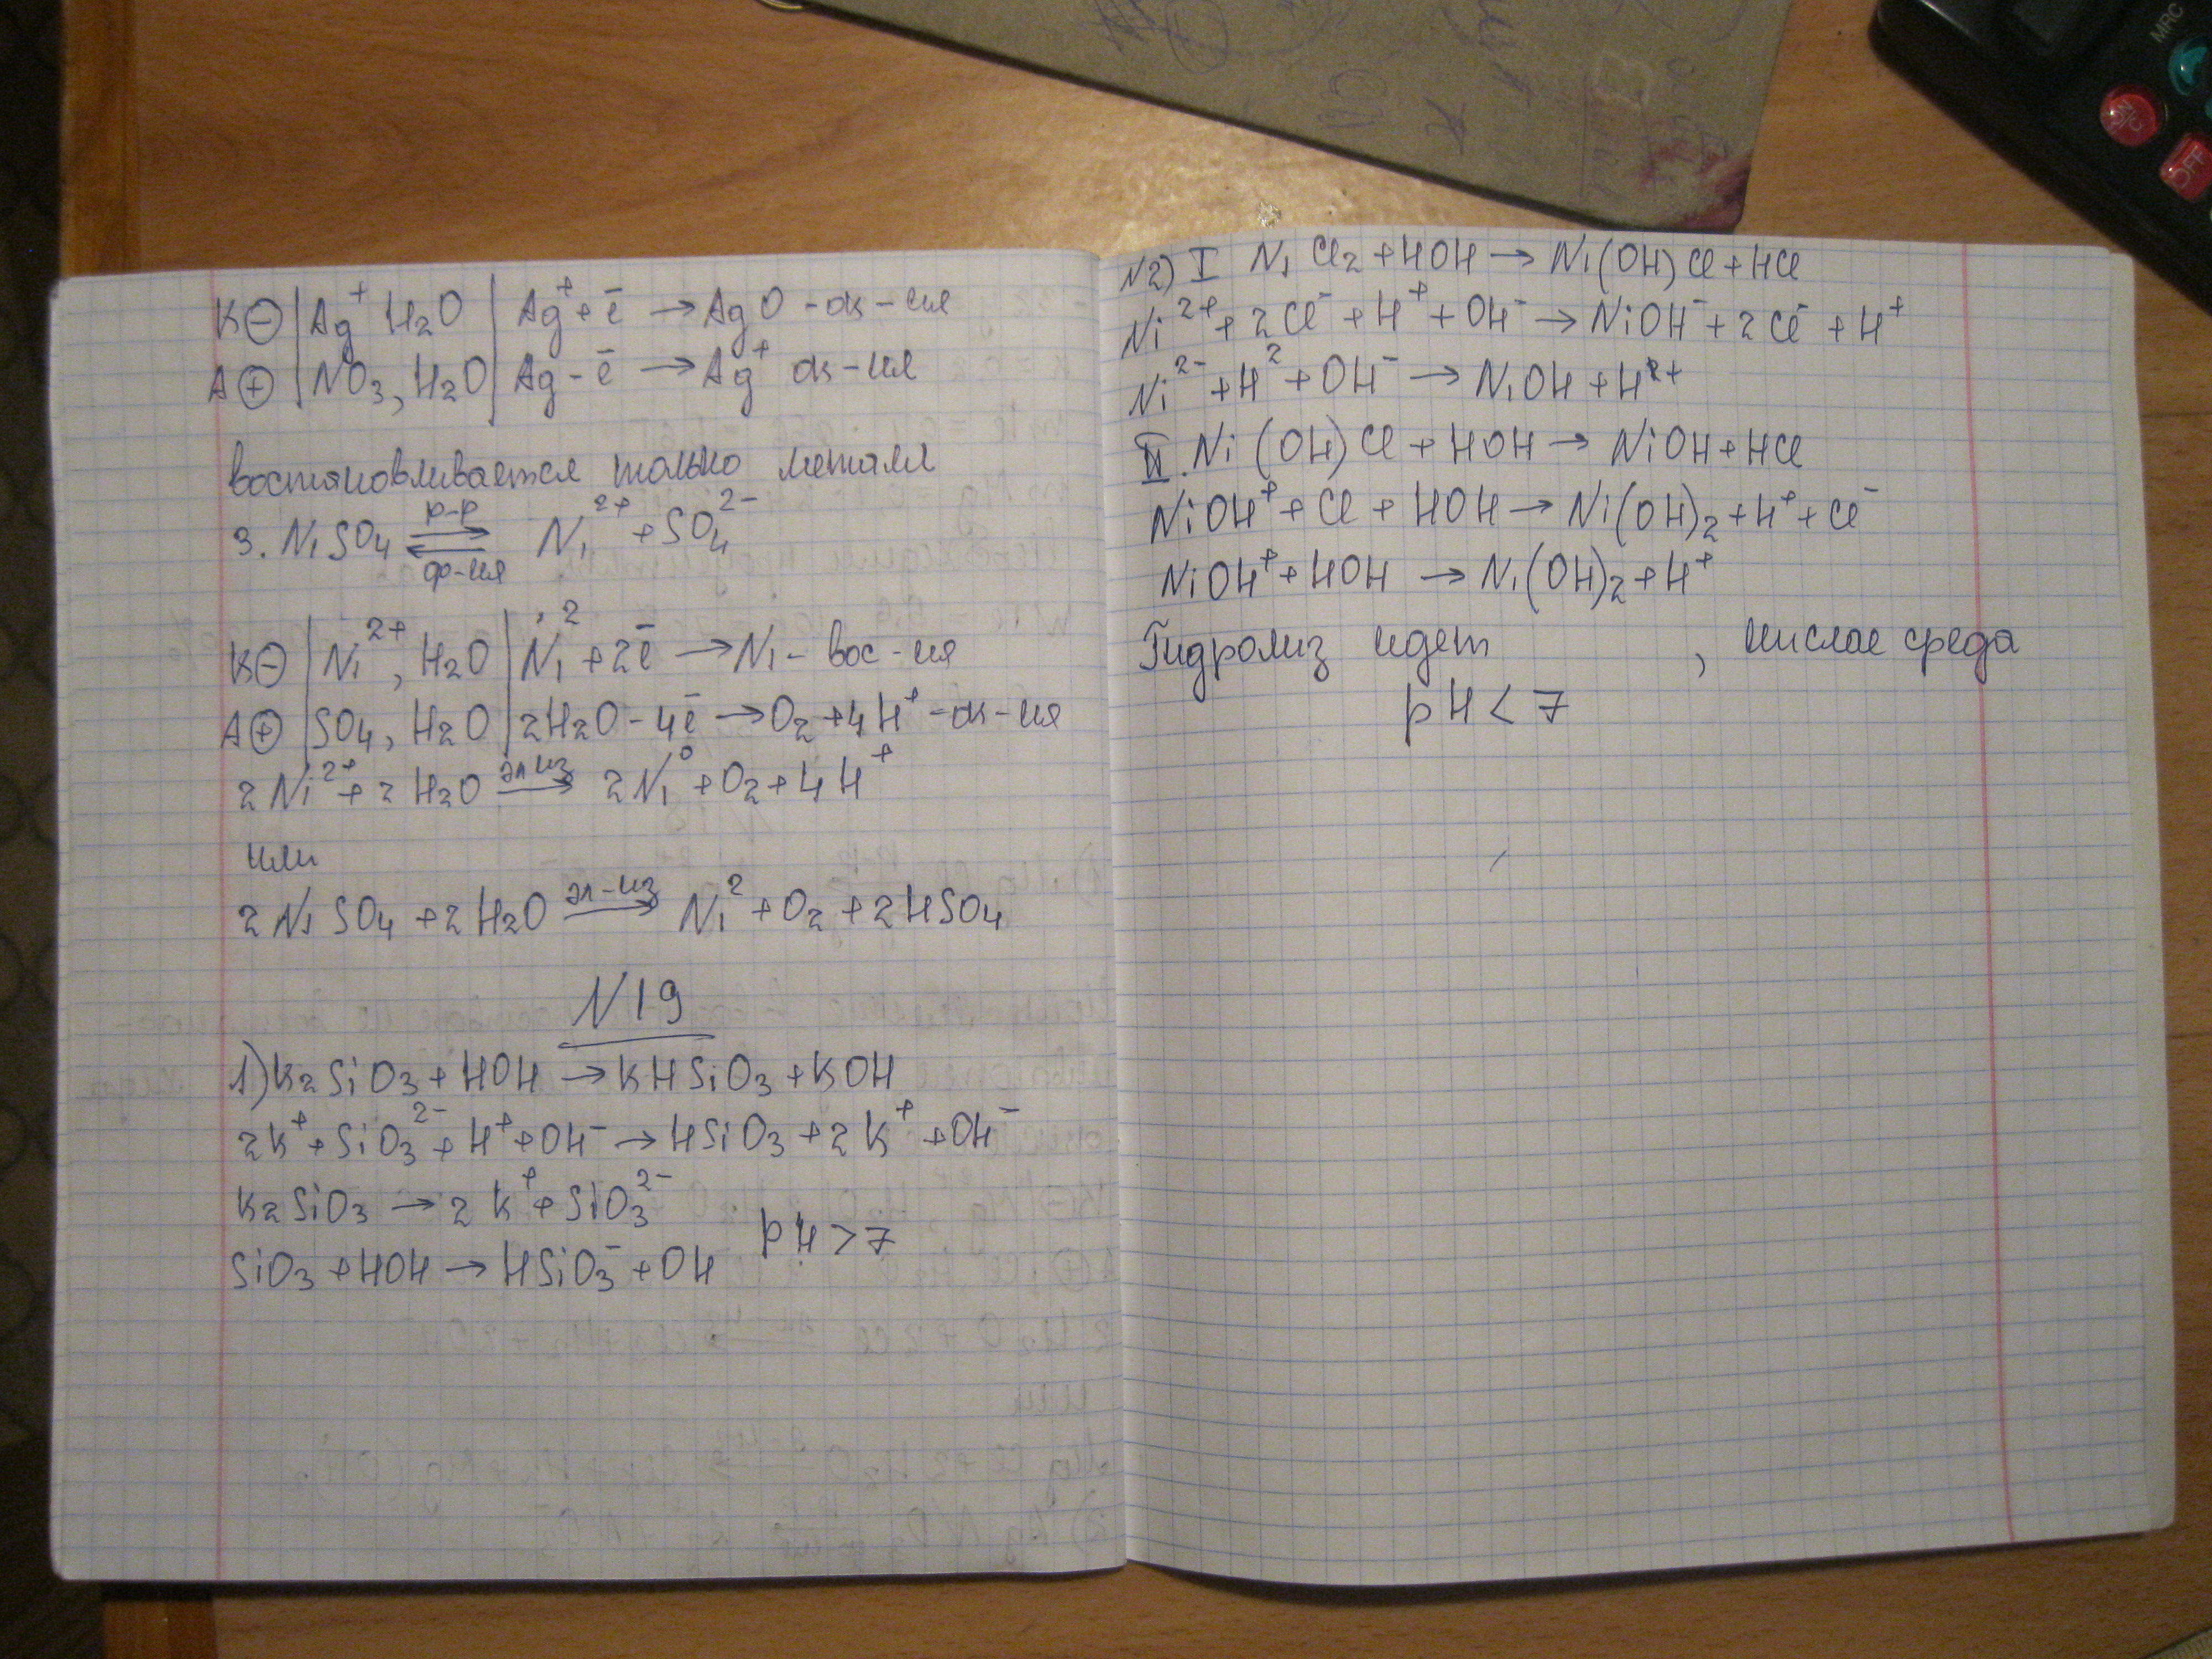 K⊖ | Ag⁺ H₂O | Ag⁺ + ē → AgO - ок-ия
A⊕ | NO₃, H₂O | Ag - ē → Ag⁺ ок-ия
востановливается только металл
3. NiSO₄ ⇄ Ni²⁺ + SO₄²⁻
р-р
K⊖ | Ni²⁺, H₂O | Ni² + 2ē → Ni - вос-ия
A⊕ | SO₄, H₂O | 2H₂O - 4ē → O₂ + 4H⁺ - ок-ия
2Ni²⁺ + 2H₂O эл-из→ 2Ni⁰ + O₂ + 4H⁺
или
2NiSO₄ + 2H₂O эл-из→ Ni² + O₂ + 2HSO₄
N19
1) K₂SiO₃ + HOH → KHSiO₃ + KOH
2K⁺ + SiO₃²⁻ + H⁺ + OH⁻ → HSiO₃ + 2K⁺ + OH⁻
K₂SiO₃ → 2K⁺ + SiO₃²⁻
SiO₃ + HOH → HSiO₃⁻ + OH
pH > 7
N2) I NiCl₂ + HOH → Ni(OH)Cl + HCl
Ni²⁺ + 2Cl⁻ + H⁺ + OH⁻ → NiOH⁻ + 2Cl⁻ + H⁺
Ni²⁻ + H² + OH⁻ → NiOH + H²⁺
II. Ni(OH)Cl + HOH → NiOH + HCl
NiOH⁺ + Cl + HOH → Ni(OH)₂ + H⁺ + Cl⁻
NiOH⁺ + HOH → Ni(OH)₂ + H⁺
Гидролиз идет , кислае среда
pH < 7
MRC
ON/C
OFF